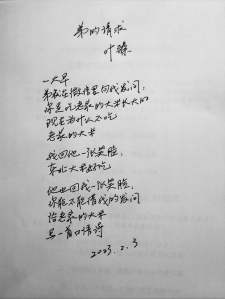 弟的请求
叶臻
一大早
弟就在微信里向我发问:
你是吃老家的大米长大的
现在为什么不吃
老家的大米
我回他一张笑脸,
东北大米好吃
他也回我一张笑脸,
你能不能借我的发问
给老家的大米
写一首口语诗
2023.2.3